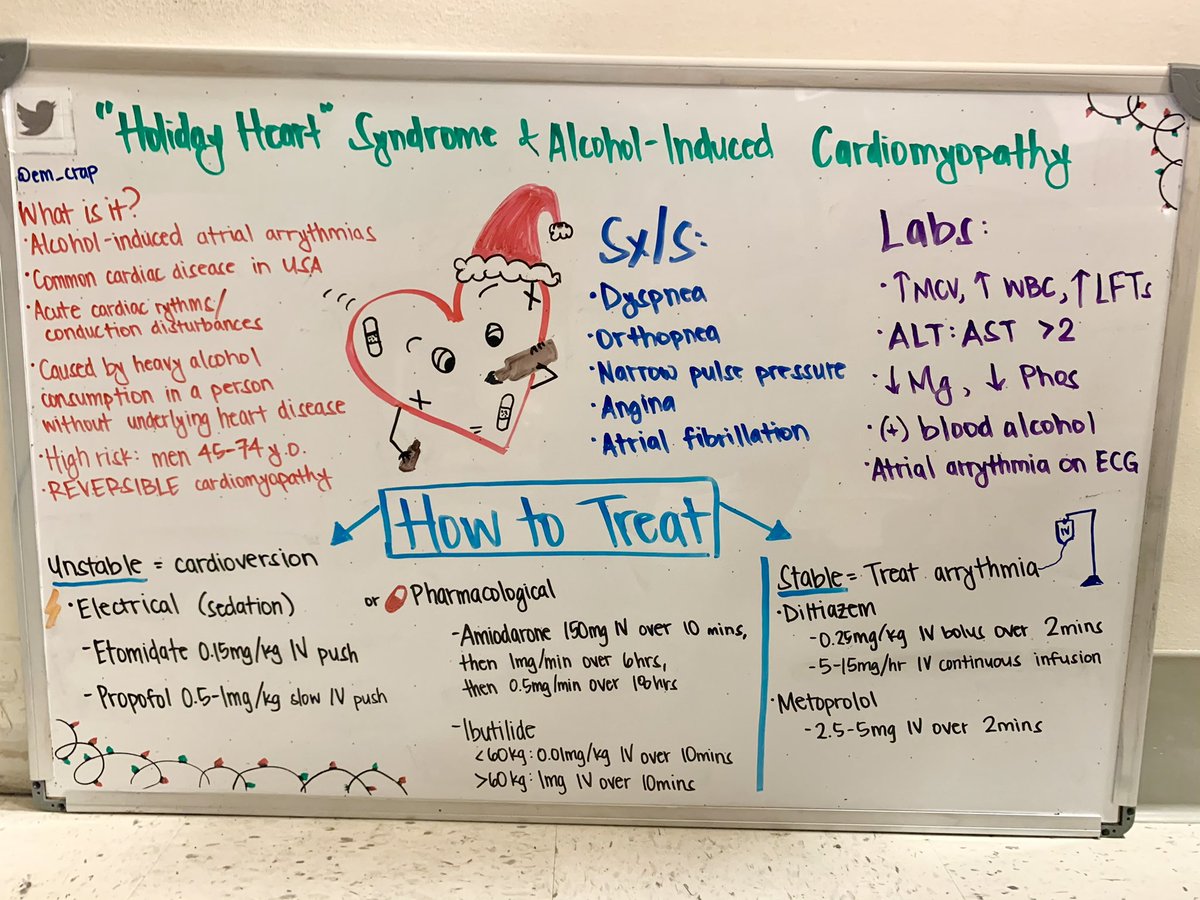 "Holiday Heart" Syndrome & Alcohol-Induced Cardiomyopathy
@em_crap
What is it?
·Alcohol-induced atrial arrythmias
·Common cardiac disease in USA
·Acute cardiac rythms/
conduction disturbances
·Caused by heavy alcohol
consumption in a person
without underlying heart disease
·High risk: men 45-74 y.o.
·REVERSIBLE cardiomyopathy
Sx/S:
·Dyspnea
·Orthopnea
·Narrow pulse pressure
·Angina
·Atrial fibrillation
Labs:
·↑MCV, ↑ WBC, ↑LFTs
·ALT:AST >2
·↓Mg, ↓ Phos
·(+) blood alcohol
·Atrial arrythmia on ECG
How to Treat
Unstable = cardioversion
·Electrical (sedation)
-Etomidate 0.15mg/kg IV push
-Propofol 0.5-1mg/kg slow IV push
or Pharmacological
-Amiodarone 150mg IV over 10 mins,
then 1mg/min over 6hrs,
then 0.5mg/min over 18hrs
-Ibutilide
<60kg: 0.01mg/kg IV over 10mins
>60kg: 1mg IV over 10mins
IV
Stable = Treat arrythmia
·Diltiazem
-0.25mg/kg IV bolus over 2mins
-5-15mg/hr IV continuous infusion
·Metoprolol
-2.5-5mg IV over 2mins